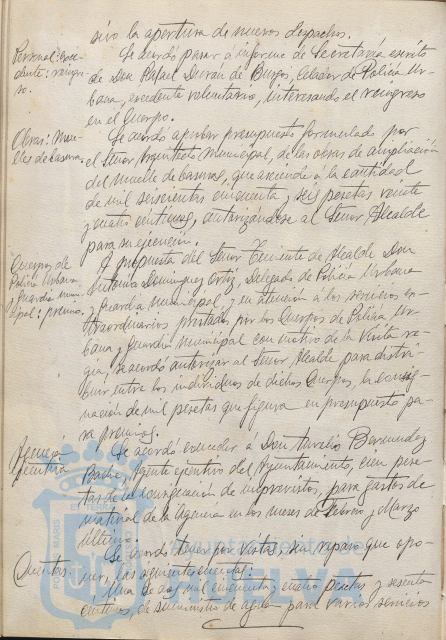 sivo la apertura de nuevos despachos.
Personal: Exce-
dente: reingre-
so.
Se acordó pasar a informe de Secretaría escrito
de Don Rafael Durán de Burgos, Celador de Policía Ur-
bana, excedente voluntario, interesando el reingreso
en el Cuerpo.
Obras: Mue-
lles de basuras.
Se acordó aprobar presupuesto formulado por
el Señor Arquitecto Municipal, de las obras de ampliación
del muelle de basuras, que asciende a la cantidad
de mil seiscientas cincuenta y seis pesetas veinte
y cuatro céntimos, autorizándose al Señor Alcalde
para su ejecución.
Cuerpos de
Policía Urbana
y Guardia muni-
cipal: premio.
A propuesta del Señor Teniente de Alcalde Don
Antonio Domínguez Ortiz, Delegado de Policía Urbana
y Guardia Municipal, y en atención a los servicios ex-
traordinarios prestados por los Cuerpos de Policía Ur-
bana y Guardia Municipal con motivo de la Visita re-
gia, se acordó autorizar al Señor Alcalde para distri-
buir entre los individuos de dichos Cuerpos, la consig-
nación de mil pesetas que figura en presupuesto pa-
ra premios.
Agencia
Ejecutiva
Se acordó conceder a Don Aurelio Bermudez
Agente ejecutivo del Ayuntamiento, cien pese-
tas de la consignación de imprevistos, para gastos de
material de la Agencia en los meses de Febrero y Marzo
últimos.
Cuentas.
Se acordó tener por vistas, sin reparos que opo-
ner, las siguientes cuentas:
Una de dos mil cincuenta y cuatro pesetas y sesenta
céntimos, de suministro de agua para varios servicios
PORTUS MARIS ET TERRAE
Ayuntamiento de
HUELVA